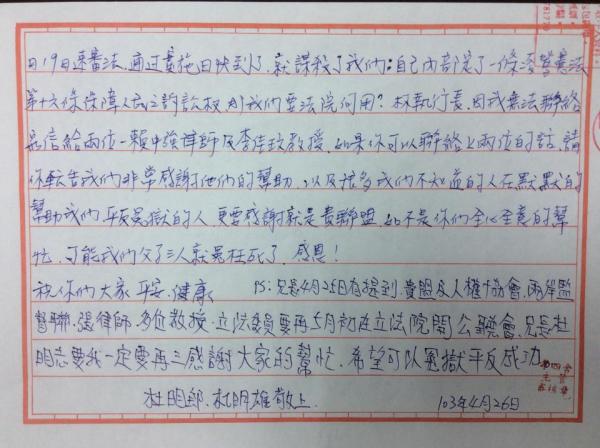 日19日速審法、通过實施日快到了、就謀殺了我們;自己內部定了一條
第十六條保障人民之訴訟权則我們要法院何用?林執行長、因我無法聯絡
是信給兩位—賴中強律師及李佳玟教授、如果你可以聯絡上兩位的話、請
你転告我們非常感謝他们的幫助、以及很多我們不知道的人在默默的
幫助我們、平反冤獄的人、更要感謝就是貴聯盟、如不是你們全心全意的幫
忙、可能我們父子三人就冤枉死了、感恩!
祝你們大家平安、健康 PS:兄長4月25日有提到、貴盟及人權協會、兩岸監
督聯盟、張律師、多位教授、立法委員要再5月初在立法院開公聽會、兄長杜
明志要我一定要再三感謝大家的幫忙、希望可以冤獄平反成功
杜明郎、杜明雄敬上 103年4月26日